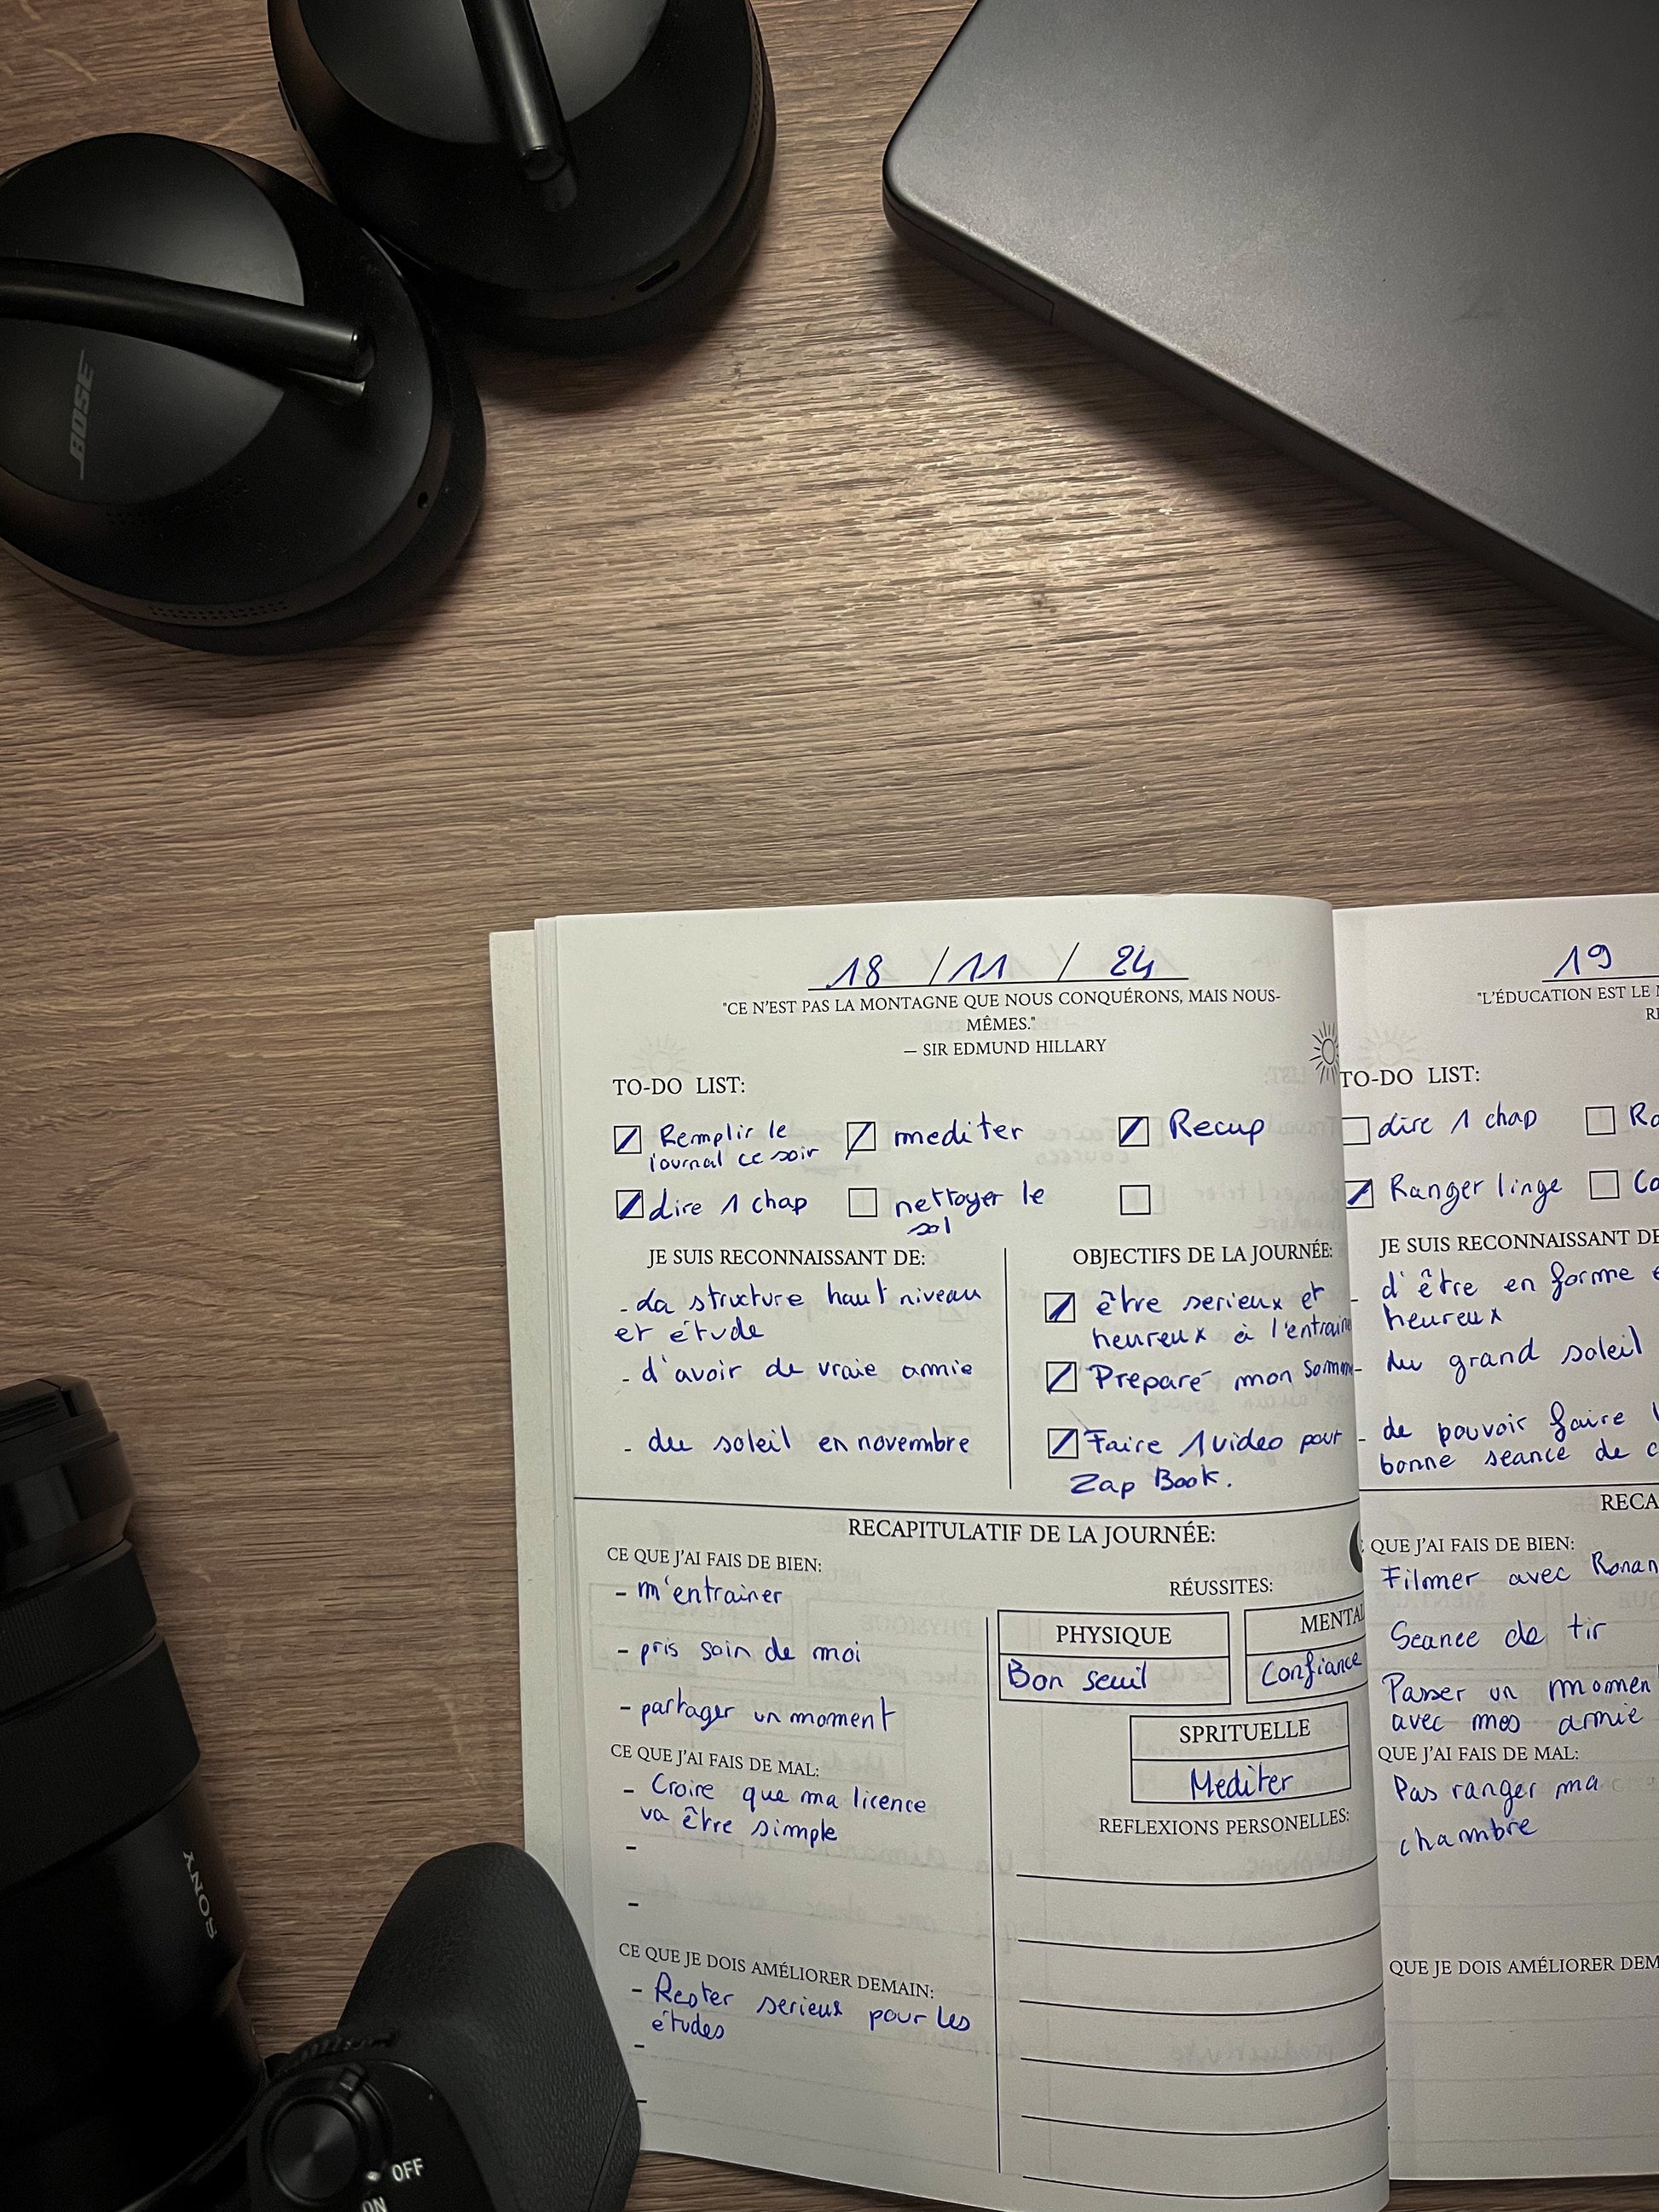 BOSE
18 / 11 / 24
"CE N'EST PAS LA MONTAGNE QUE NOUS CONQUÉRONS, MAIS NOUS-
MÊMES."
— SIR EDMUND HILLARY
TO-DO LIST:
Remplir le
journal ce soir
mediter
Recup
Lire 1 chap
nettoyer le
sol
JE SUIS RECONNAISSANT DE:
- La structure haut niveau
et étude
- d'avoir de vraie amie
- du soleil en novembre
OBJECTIFS DE LA JOURNÉE:
être serieux et
heureux à l'entraine
Preparé mon
Faire 1 video pour
Zap Book.
RECAPITULATIF DE LA JOURNÉE:
CE QUE J'AI FAIS DE BIEN:
- m'entrainer
- pris soin de moi
- partager un moment
CE QUE J'AI FAIS DE MAL:
- Croire que ma licence
va être simple
-
-
CE QUE JE DOIS AMÉLIORER DEMAIN:
- Rester serieux pour les
études
-
-
RÉUSSITES:
PHYSIQUE
Bon seuil
MENTAL
Confiance
SPRITUELLE
Mediter
REFLEXIONS PERSONELLES:
19
"L'ÉDUCATION EST LE
TO-DO LIST:
Lire 1 chap
Ranger linge
JE SUIS RECONNAISSANT DE
- d'être en forme e
heureux
- du grand soleil
- de pouvoir faire
bonne seance de c
RECA
QUE J'AI FAIS DE BIEN:
Filmer avec Ronan
Seance de tir
Passer un momen
avec mes amie
QUE J'AI FAIS DE MAL:
Pas ranger ma
chambre
QUE JE DOIS AMÉLIORER DEM
SONY
OFF
ON